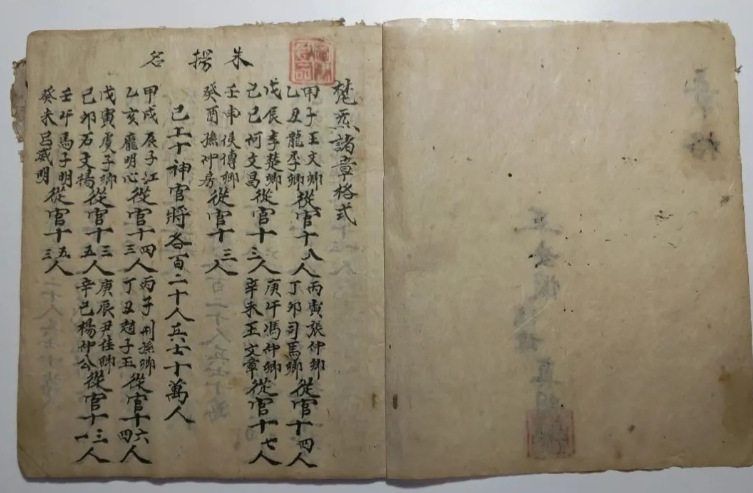 朱揚名
梵炁諸章格式
甲子王文卿
乙丑龍季卿
從官十八人
丙寅張仲卿
丁卯司馬卿
從官十四人
戊辰李楚卿
己巳何文昌
從官十三人
庚午馮仲卿
辛未王文章
從官十七人
壬申侯博卿
癸酉孫仲房
從官十三人
已上十神官將各百二十人兵士十萬人
甲戌展子江
乙亥龐明心
從官十四三人
丙子刑孫卿
丁丑趙子玉
從官十六四人
戊寅虞子卿
己卯石文楊
從官十三五人
庚辰尹佳卿
辛巳楊仲公
從官十三一人
壬午馬子明
癸未呂威明
從官十五三人